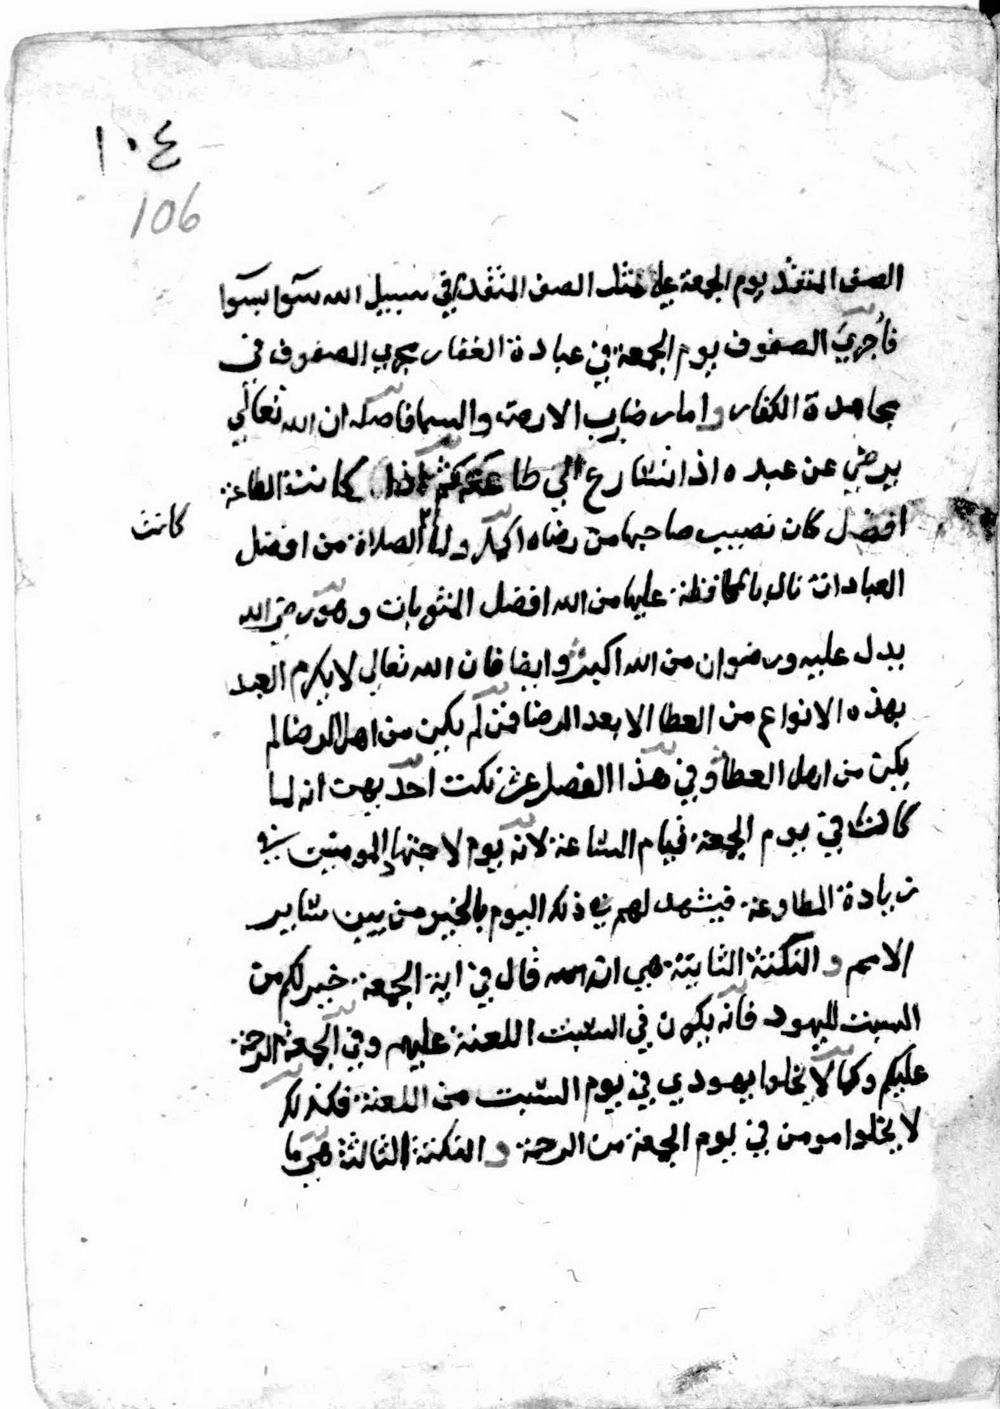 ١٠٤
106
الصف المتقدم يوم الجمعة علي مثل الصف المتقدم في سبيل الله سوا بسوا
فأجري الصفوف يوم الجمعة في عبادة الغفار مجري الصفوف في
مجاهدة الكفار واما رضارب الارض والسما فاصله ان الله تعالي
يرضي عن عبده اذا تسارع الي طاعته كانت الطاعة
افضل كان نصيب صاحبها من رضاه اكبر ولما الصلاة من افضل
كانت
العبادات نال بالمحافظة عليها من الله افضل المثوبات وهو رضي الله
يدل عليه ورضوان من الله اكبر وايضا فان الله تعالي لا يكرم العبد
بهذه الانواع من العطا الا بعد الرضا فمن لم يكن من اهل الرضا لم
يكن من اهل العطا وفي هذا الفصل عشر نكت احديهن انه لما
كانت في يوم الجمعة قيام الساعة لانه يوم لاجتهاد المومنين في
زيادة المطاوعة فيشهد لهم في ذلك اليوم بالخير من بين ساير
الامم والنكتة الثانية هي ان الله قال في اية الجمعة خير لكم من
السبت لليهود فانه يكون في السبت اللعنة عليهم وفي الجمعة الرحمة
عليكم وكما لا يخلوا يهودي في يوم السبت من اللعنة فكذلك
لا يخلوا مومن في يوم الجمعة من الرحمة والنكتة الثالثة هي ما